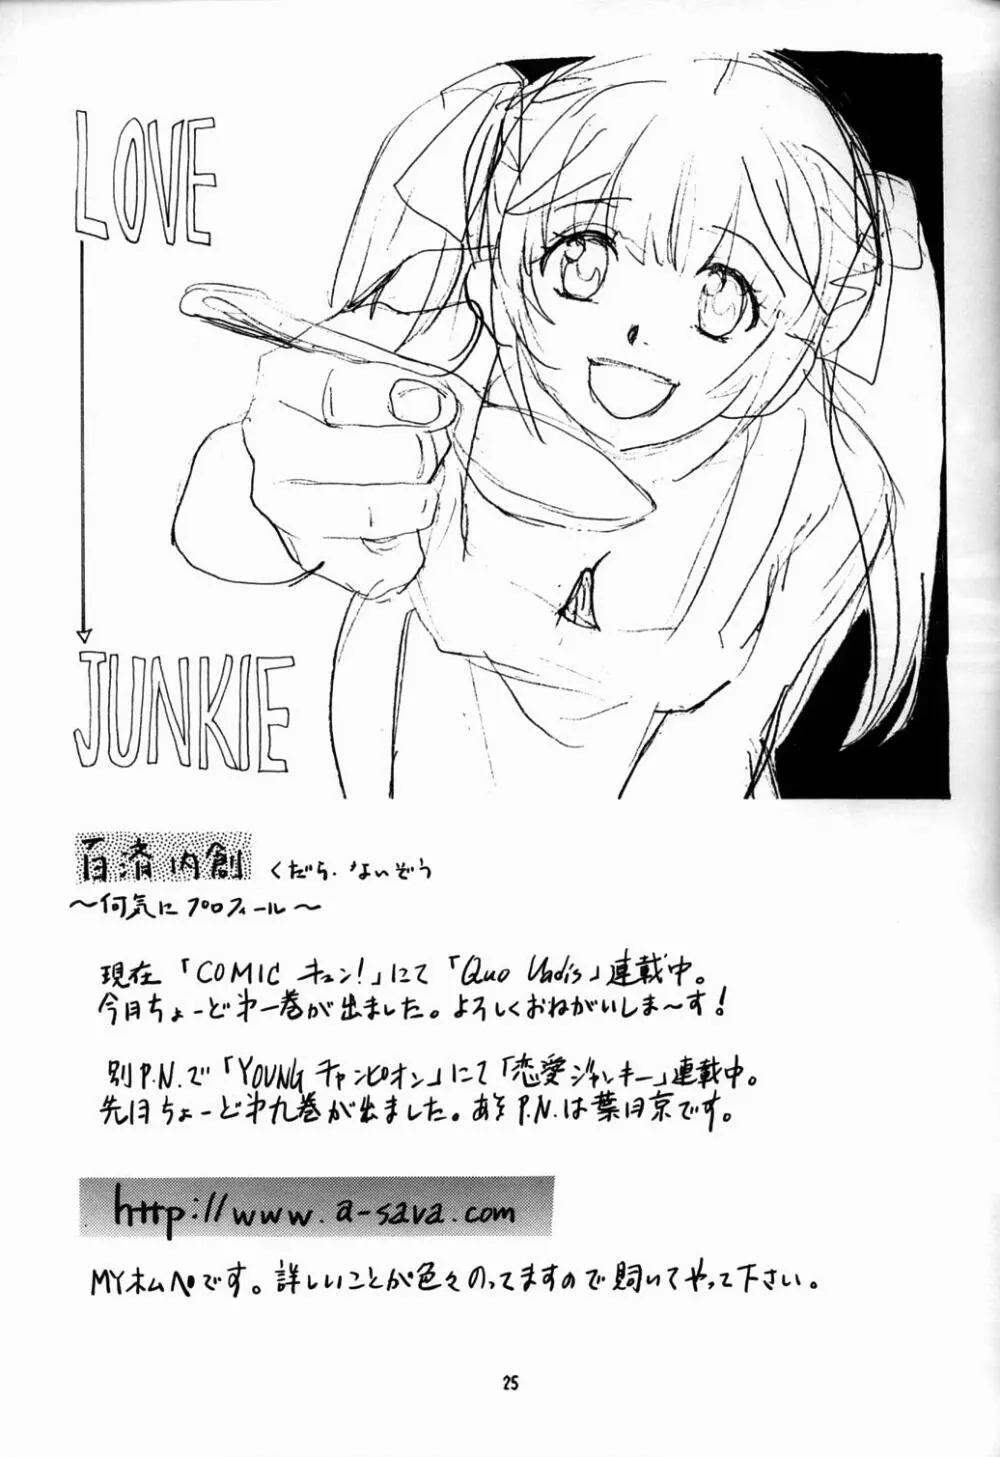 LOVE
JUNKIE
百済内創 くだら・ないぞう
〜何気にプロフィール〜
現在「COMIC キュン!」にて「Quo Vadis」連載中。
今月ちょーど第一巻が出ました。よろしくおねがいしま〜す!
別P.N.で「YOUNG チャンピオン」にて「恋愛ジャンキー」連載中。
先月ちょーど第九巻が出ました。あ、P.N.は葉月京です。
http://www.a-sava.com
MYホムペです。詳しいことが色々のってますので覗いてやって下さい。
25